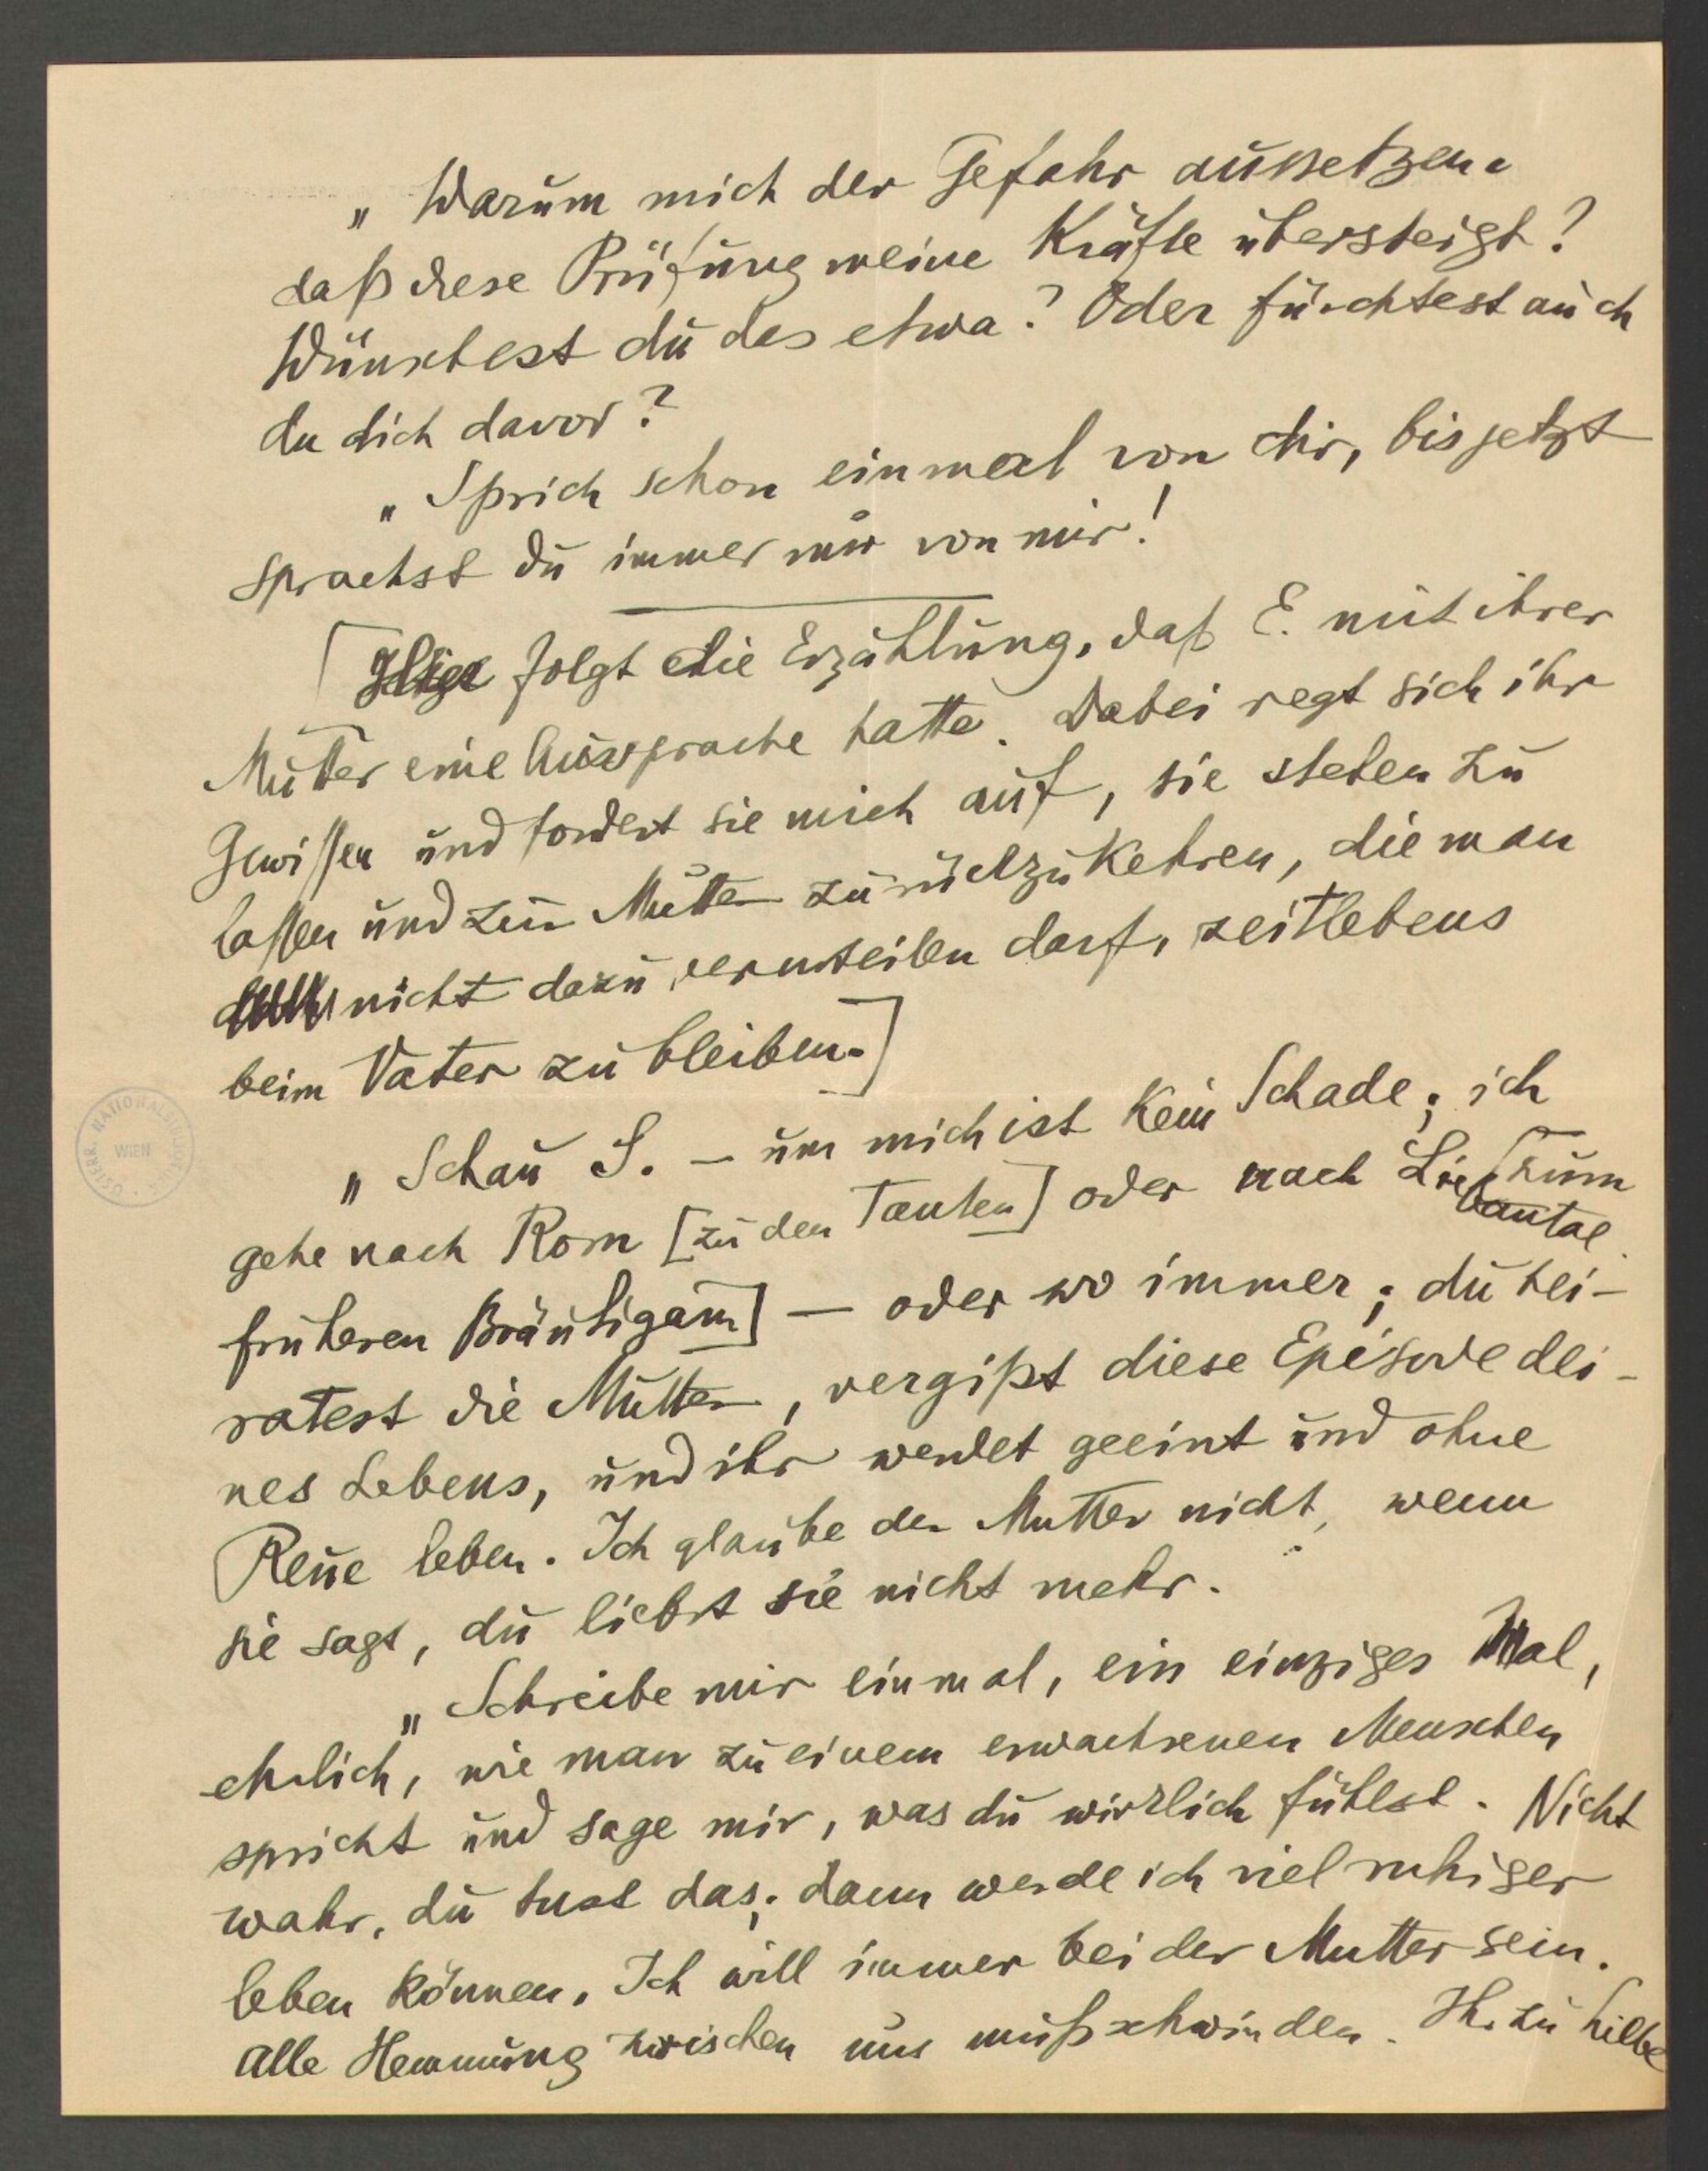 „Warum mich der Gefahr aussetzen,
daß diese Prüfung meine Kräfte übersteigt?
Wünschest du das etwa? Oder fürchtest auch
du dich davor?
„Sprich schon einmal von dir, bis jetzt
sprachst du immer nur von mir!
[Hier folgt die Erzählung, daß E. mit ihrer
Mutter eine Aussprache hatte. Dabei regt sich ihr
Gewissen und fordert sie mich auf, sie stehen zu
lassen und zur Mutter zurückzukehren, die man
nicht dazu verurteilen darf, zeitlebens
beim Vater zu bleiben.]
„Schau S. – um mich ist kein Schade; ich
gehe nach Rom [zu den Tanten] oder nach [zum
früheren Bräutigam] – oder wo immer; du hei-
ratest die Mutter, vergißt diese Episode dei-
nes Lebens, und ihr werdet geeint und ohne
Reue leben. Ich glaube der Mutter nicht, wenn
sie sagt, du liebst sie nicht mehr.
„Schreibe mir einmal, ein einziges Mal,
ehrlich, wie man zu einem erwachsenen Menschen
spricht und sage mir, was du wirklich fühlst. Nicht
wahr, du tust das; dann werde ich viel ruhiger
leben können. Ich will immer bei der Mutter sein.
Alle Hemmung zwischen uns muß schwinden. zu
ÖSTERR. NATIONALBIBLIOTHEK
WIEN